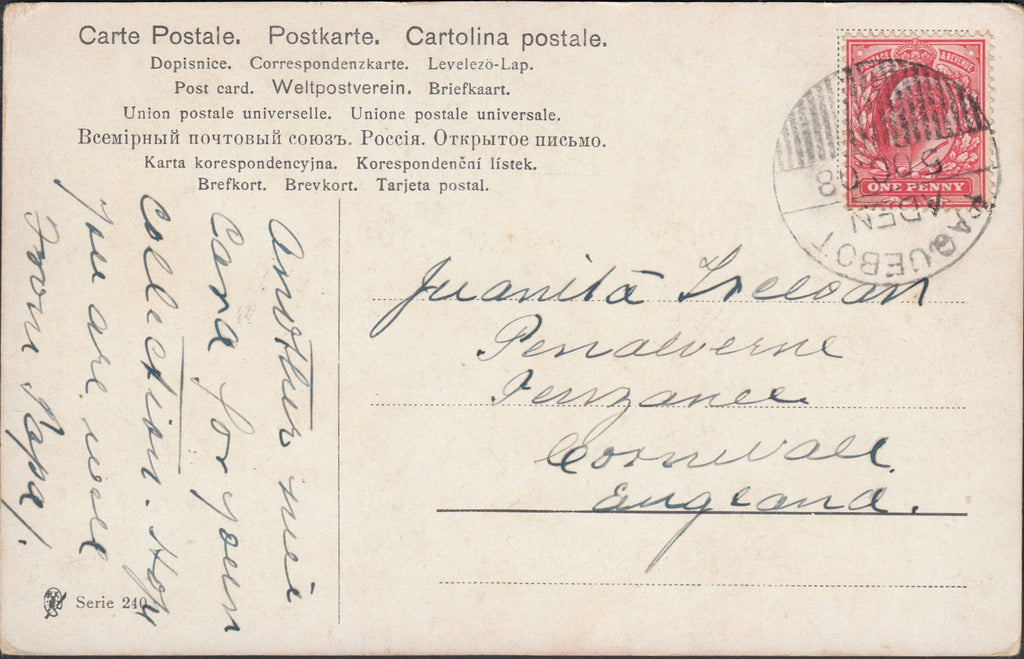 Carte Postale. Postkarte. Cartolina postale.
Dopisnice. Correspondenzkarte. Levelezö-Lap.
Post card. Weltpostverein. Briefkaart.
Union postale universelle. Unione postale universale.
Всемірный почтовый союзъ. Россія. Открытое письмо.
Karta korespondencyjna. Korespondenční lístek.
Brefkort. Brevkort. Tarjeta postal.
POSTAGE & REVENUE
ONE PENNY
PAQUEBOT
ADEN
5 OC 08
Another nice
Card for your
Collection. Hope
you are well
From Papa/.
Juanita
Penalverne
Penzance
Cornwall
England.
Serie 240